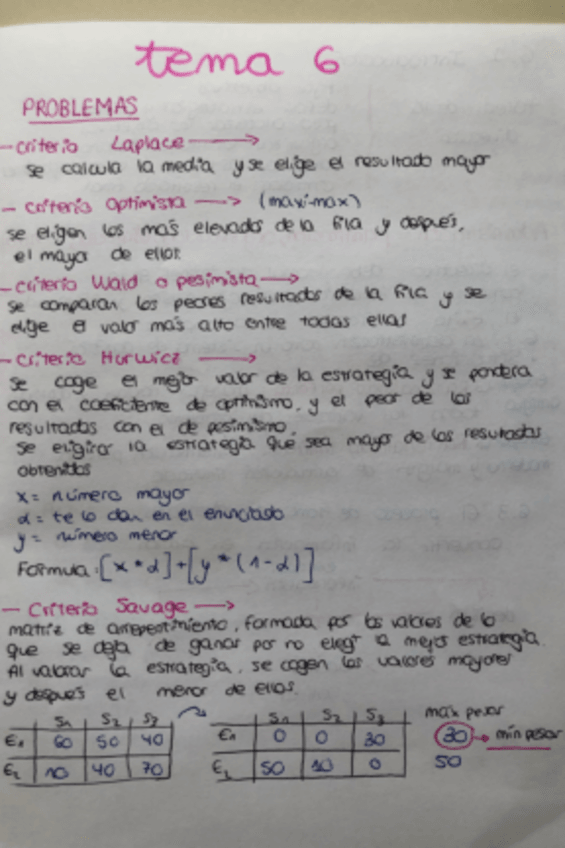 tema 6
PROBLEMAS
- criterio Laplace →
se calcula la media y se elige el resultado mayor
- criterio optimista → (maxi-max)
se eligen los más elevados de la fila y después,
el mayor de ellos.
- criterio Wald o pesimista →
se comparan los peores resultados de la fila y se
elige el valor más alto entre todas ellas
- criterio Hurwicz →
se coge el mejor valor de la estrategia y se pondera
con el coeficiente de optimismo, y el peor de los
resultados con el de pesimismo.
se eligirá la estrategia que sea mayor de los resultados
obtenidos
x = número mayor
α = te lo dan en el enunciado
y = número menor
Formula: [x * α] + [y * (1 - α)]
- Criterio Savage →
matriz de arrepentimiento, formada por los valores de lo
que se deja de ganar por no elegir la mejor estrategia.
Al valorar la estrategia, se cogen los valores mayores
y después el menor de ellos.
S1 S2 S3
E1 60 50 40
E2 10 40 70
S1 S2 S3 max pesar
E1 0 0 30 30 → min pesar
E2 50 10 0 50